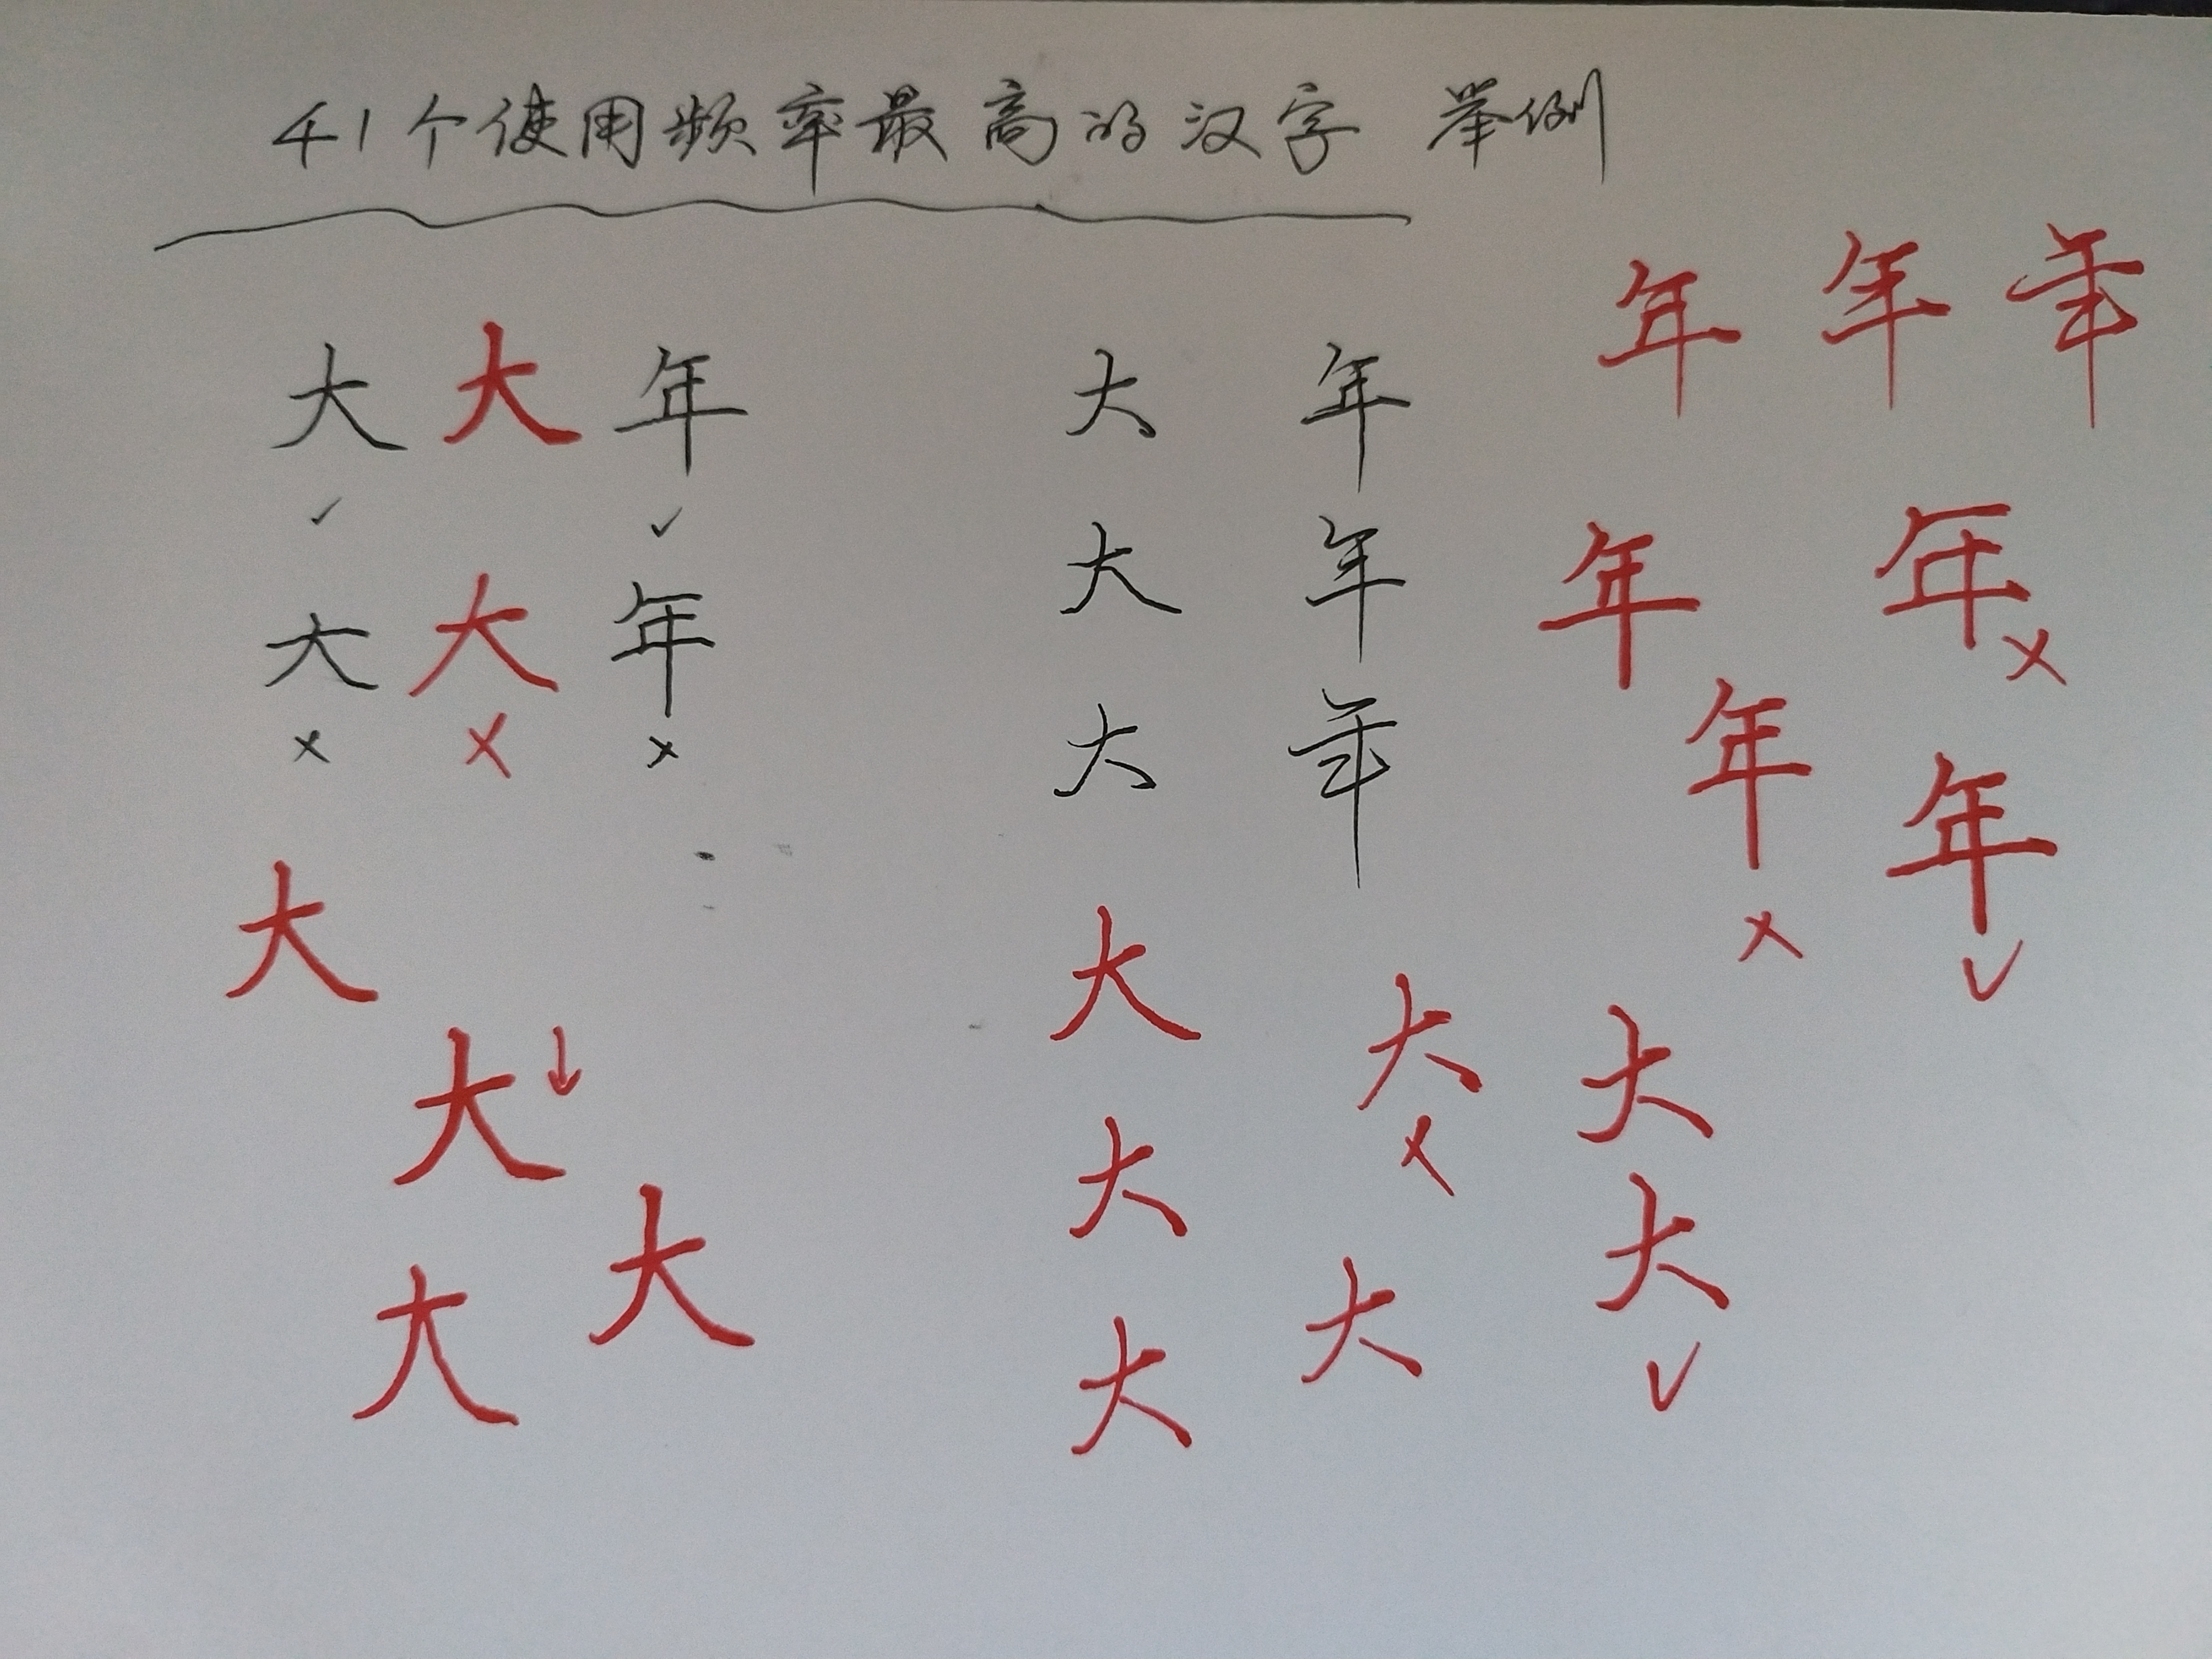 41个使用频率最高的汉字 举例
年 年 年
大 大 年 大 年
✓ ✓
年 年 ×
大 大 年 大 年
× × × 大 年
年 ×
年 ✓
大 大
大 × 大
大 ↓ 大
大 大 ✓
大 大
大